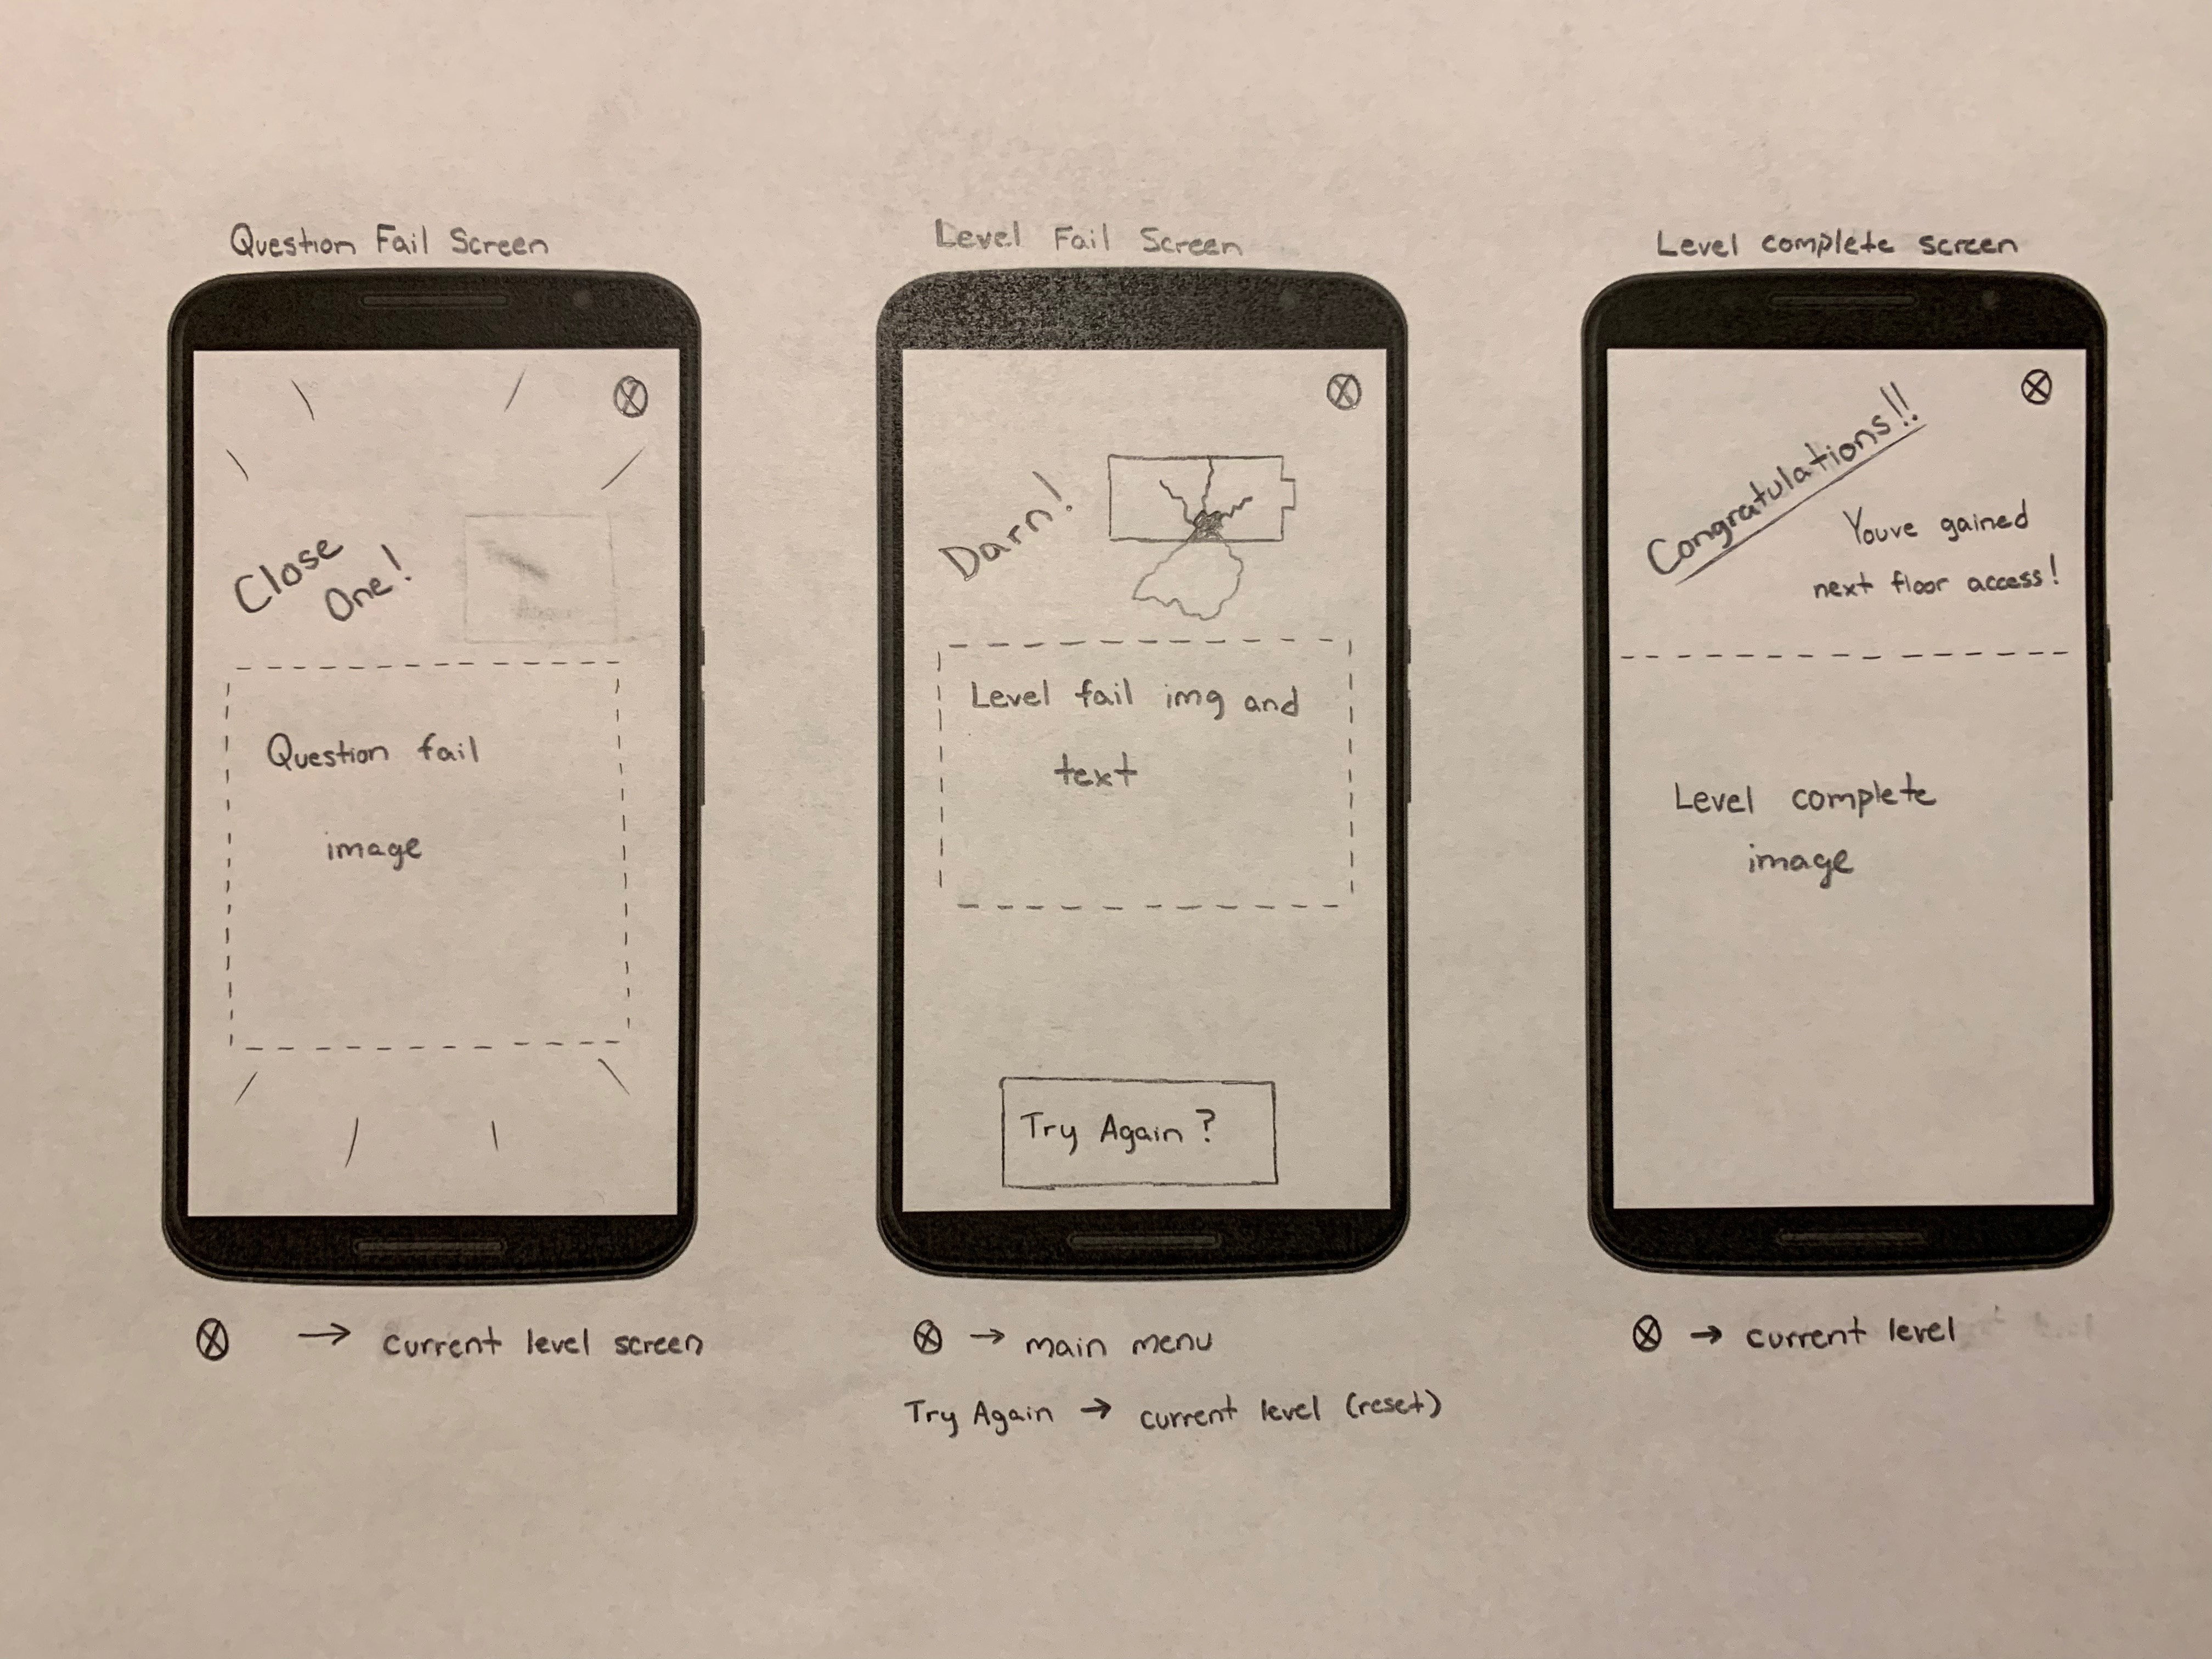 Question Fail Screen
Close
One!
Question fail
image
→ current level screen
Level Fail Screen
Darn!
Level fail img and
text
Try Again?
→ main menu
Try Again → current level (reset)
Level complete screen
Congratulations!!
Youve gained
next floor access!
Level complete
image
→ current level